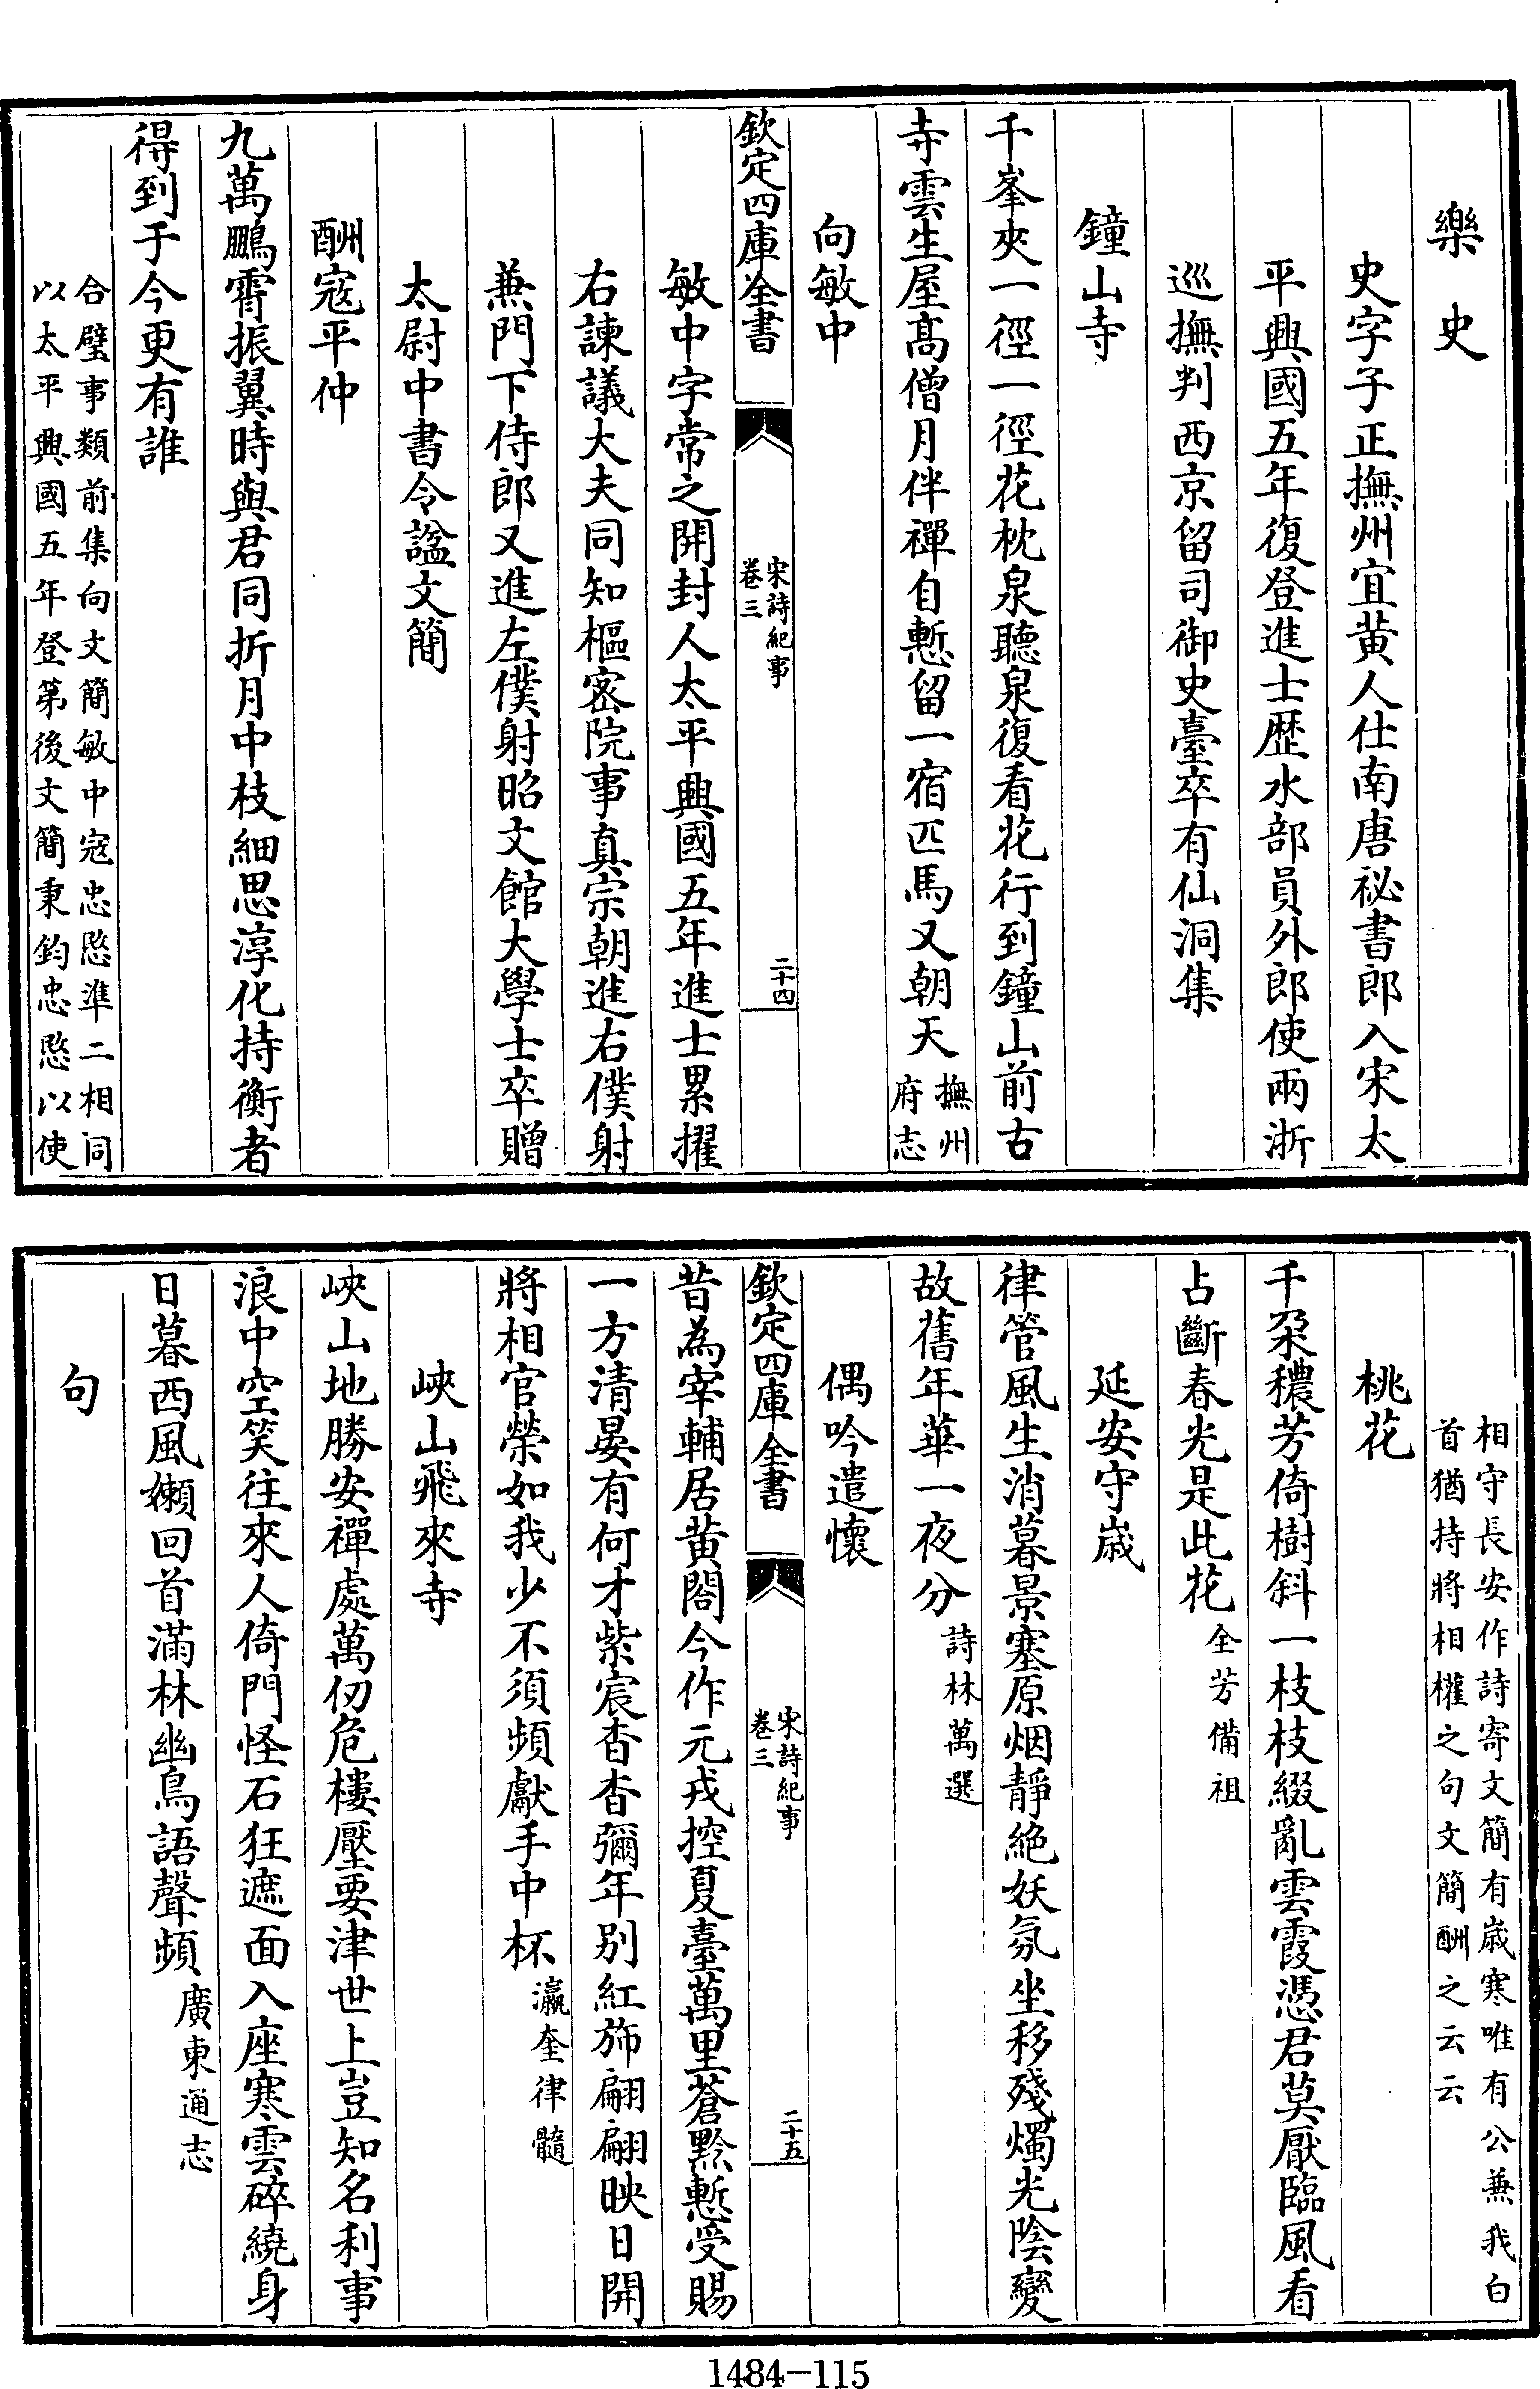 樂史
史字子正撫州宜黄人仕南唐祕書郎入宋太
平興國五年復登進士歴水部員外郎使兩浙
巡撫判西京留司御史臺卒有仙洞集
鐘山寺
千峯夾一徑一徑花枕泉聽泉復看花行到鐘山前古
寺雲生屋髙僧月伴禪自慙留一宿匹馬又朝天撫州
府志
向敏中
欽定四庫全書
宋詩紀事
卷三
二十四
敏中字常之開封人太平興國五年進士累擢
右諫議大夫同知樞密院事真宗朝進右僕射
兼門下侍郎又進左僕射昭文館大學士卒贈
太尉中書令諡文簡
酬寇平仲
九萬鵬霄振翼時與君同折月中枝細思淳化持衡者
得到于今更有誰
合璧事類前集向文簡敏中寇忠愍準二相同
以太平興國五年登第後文簡秉鈞忠愍以使
相守長安作詩寄文簡有嵗寒唯有公兼我白
首猶持將相權之句文簡酬之云云
桃花
千朶穠芳倚樹斜一枝枝綴亂雲霞憑君莫厭臨風看
占斷春光是此花全芳備祖
延安守嵗
律管風生消暮景塞原烟靜絶妖氛坐移殘燭光陰變
故舊年華一夜分詩林萬選
偶吟遣懷
欽定四庫全書
宋詩紀事
卷三
二十五
昔為宰輔居黄閤今作元戎控夏臺萬里蒼黔慙受賜
一方清晏有何才紫宸杳杳彌年别紅斾翩翩映日開
將相官榮如我少不須頻獻手中杯瀛奎律髓
峽山飛來寺
峽山地勝安禪處萬仞危樓壓要津世上豈知名利事
浪中空笑往來人倚門怪石狂遮面入座寒雲碎繞身
日暮西風嬾回首滿林幽鳥語聲頻廣東通志
句
1484-115